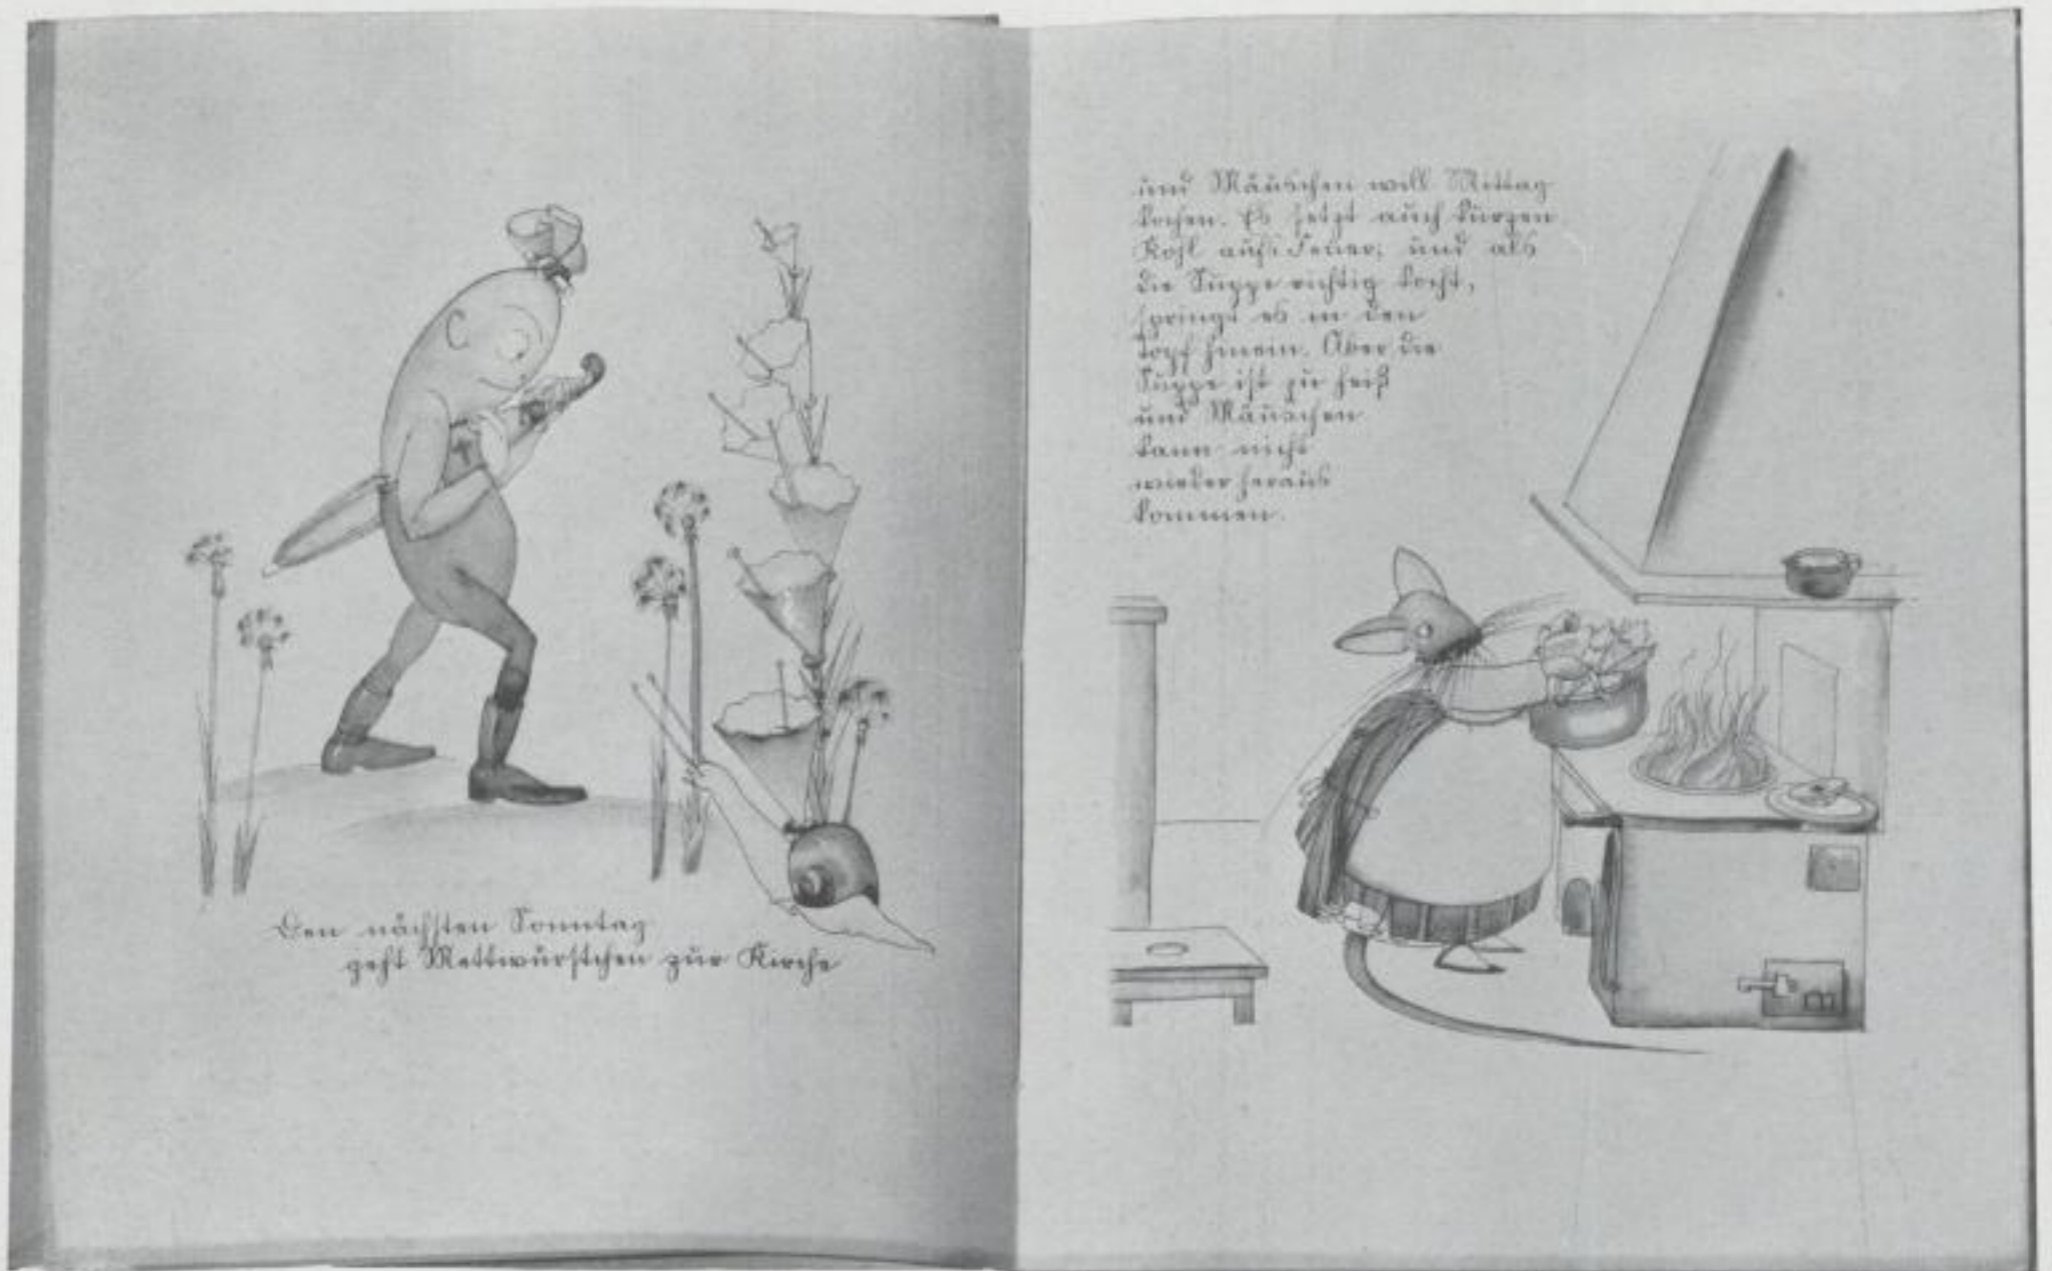 Den nächsten Sonntag
geht Mettwürstchen zur Kirche
und Mäuschen will Mittag
kochen. Es setzt auch kurzen
Kohl aufs Feuer; und als
die Suppe richtig kocht,
springt es in den
Topf hinein. Aber die
Suppe ist zu heiß
und Mäuschen
kann nicht
wieder heraus
kommen.